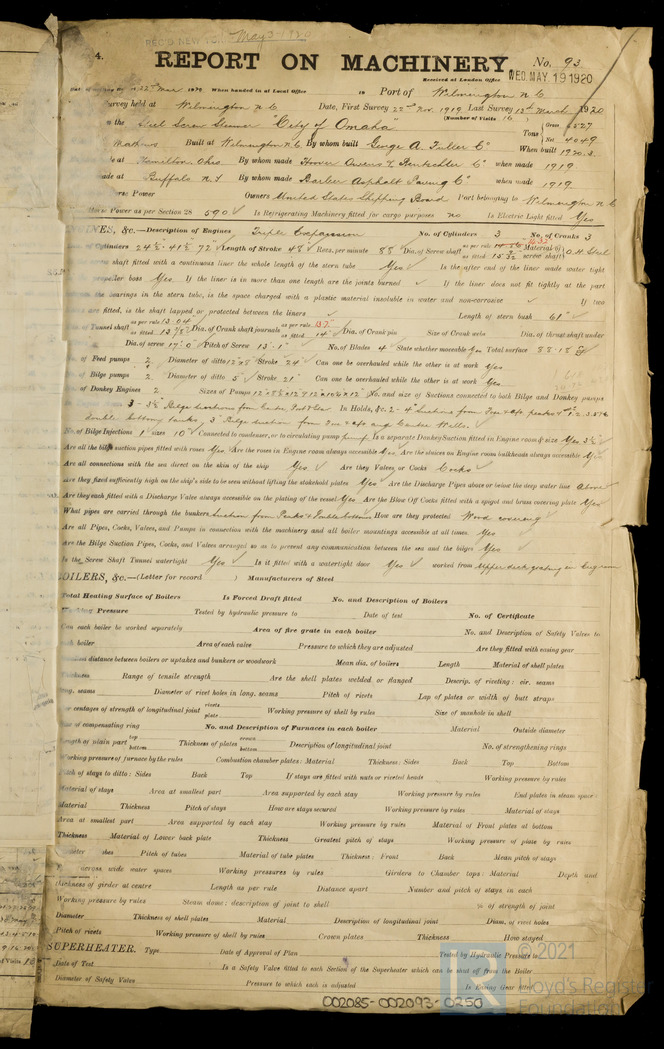 REC'D NEW YORK May 3-1920
4.
REPORT ON MACHINERY.
No. 93
Received at London Office WED. MAY 19 1920
22nd Mar 1920 When handed in at Local Office 19 Port of Wilmington N.C.
Survey held at Wilmington N.C. Date, First Survey 22nd Nov. 1919 Last Survey March 1920
(Number of Visits 16)
the Steel Screw Steamer "City of Omaha" Tons Gross Net 4049
Built at Wilmington N.C. By whom built George A. Fuller Co When built 1920.3
at Hamilton, Ohio By whom made Hooven Owens & Rentschler Co when made 1919
made at Buffalo N.Y. By whom made Barber Asphalt Paving Co when made 1919
Power Owners United States Shipping Board Port belonging to Wilmington N.C.
Power as per Section 28 590 Is Refrigerating Machinery fitted for cargo purposes no Is Electric Light fitted Yes
ENGINES, &c.—Description of Engines Triple Expansion No. of Cylinders 3 No. of Cranks 3
of Cylinders 24½ · 41½ · 72" Length of Stroke 48" Revs. per minute 88 Dia. of Screw shaft as per rule as fitted Material of screw shaft O.H. Steel
shaft fitted with a continuous liner the whole length of the stern tube Yes Is the after end of the liner made water tight
propeller boss Yes. If the liner is in more than one length are the joints burned If the liner does not fit tightly at the part
the bearings in the stern tube, is the space charged with a plastic material insoluble in water and non-corrosive If two
are fitted, is the shaft lapped or protected between the liners Length of stern bush 61"
of Tunnel shaft as per rule 13.04 as fitted Dia. of Crank shaft journals as per rule as fitted 14 Dia. of Crank pin Size of Crank webs Dia. of thrust shaft under
Dia. of screw 17' 0" Pitch of Screw 13' 1" No. of Blades 4 State whether moveable Yes Total surface
of Feed pumps 2 Diameter of ditto Stroke 24" Can one be overhauled while the other is at work Yes
of Bilge pumps 2 Diameter of ditto 5" Stroke 21" Can one be overhauled while the other is at work Yes
of Donkey Engines 2 Sizes of Pumps No. and size of Suctions connected to both Bilge and Donkey pumps
3 - 3½" Bilge Suctions from In Holds, &c. 2 - 4" suctions from
double bottom tanks, 3" Bilge suction from
No. of Bilge Injections 1 sizes 10" Connected to condenser, or to circulating pump pump. Is a separate Donkey Suction fitted in Engine room & size Yes 3½"
Are all the bilge suction pipes fitted with roses Yes Are the roses in Engine room always accessible Yes Are the sluices on Engine room bulkheads always accessible Yes
Are all connections with the sea direct on the skin of the ship Yes Are they Valves or Cocks Cocks
Are they fixed sufficiently high on the ship's side to be seen without lifting the stokehold plates Yes Are the Discharge Pipes above or below the deep water line above
Are they each fitted with a Discharge Valve always accessible on the plating of the vessel Yes Are the Blow Off Cocks fitted with a spigot and brass covering plate Yes
What pipes are carried through the bunkers Suction from Peaks & Double bottom How are they protected Wood covering
Are all Pipes, Cocks, Valves, and Pumps in connection with the machinery and all boiler mountings accessible at all times Yes
Are the Bilge Suction Pipes, Cocks, and Valves arranged so as to prevent any communication between the sea and the bilges Yes
Is the Screw Shaft Tunnel watertight Yes Is it fitted with a watertight door Yes worked from Upper deck grating in
BOILERS, &c.—(Letter for record ) Manufacturers of Steel
Total Heating Surface of Boilers Is Forced Draft fitted No. and Description of Boilers
Working Pressure Tested by hydraulic pressure to Date of test No. of Certificate
Can each boiler be worked separately Area of fire grate in each boiler No. and Description of Safety Valves to
each boiler Area of each valve Pressure to which they are adjusted Are they fitted with easing gear
distance between boilers or uptakes and bunkers or woodwork Mean dia. of boilers Length Material of shell plates
Thickness Range of tensile strength Are the shell plates welded or flanged Descrip. of riveting: cir. seams
long. seams Diameter of rivet holes in long. seams Pitch of rivets Lap of plates or width of butt straps
centages of strength of longitudinal joint rivets plate Working pressure of shell by rules Size of manhole in shell
of compensating ring No. and Description of Furnaces in each boiler Material Outside diameter
Length of plain part top bottom Thickness of plates crown bottom Description of longitudinal joint No. of strengthening rings
Working pressure of furnace by the rules Combustion chamber plates: Material Thickness: Sides Back Top Bottom
Pitch of stays to ditto: Sides Back Top If stays are fitted with nuts or riveted heads Working pressure by rules
Material of stays Area at smallest part Area supported by each stay Working pressure by rules End plates in steam space:
Material Thickness Pitch of stays How are stays secured Working pressure by rules Material of stays
Area at smallest part Area supported by each stay Working pressure by rules Material of Front plates at bottom
Thickness Material of Lower back plate Thickness Greatest pitch of stays Working pressure of plate by rules
Diameter of tubes Pitch of tubes Material of tube plates Thickness: Front Back Mean pitch of stays
across wide water spaces Working pressures by rules Girders to Chamber tops: Material Depth and
thickness of girder at centre Length as per rule Distance apart Number and pitch of stays in each
Working pressure by rules Steam dome: description of joint to shell % of strength of joint
Diameter Thickness of shell plates Material Description of longitudinal joint Diam. of rivet holes
Pitch of rivets Working pressure of shell by rules Crown plates Thickness How stayed
SUPERHEATER. Type Date of Approval of Plan Tested by Hydraulic Pressure to
Date of Test Is a Safety Valve fitted to each Section of the Superheater which can be shut off from the Boiler
Diameter of Safety Valve Pressure to which each is adjusted Is Easing Gear fitted
002085-002093-0250
© 2021
Lloyd's Register
Foundation